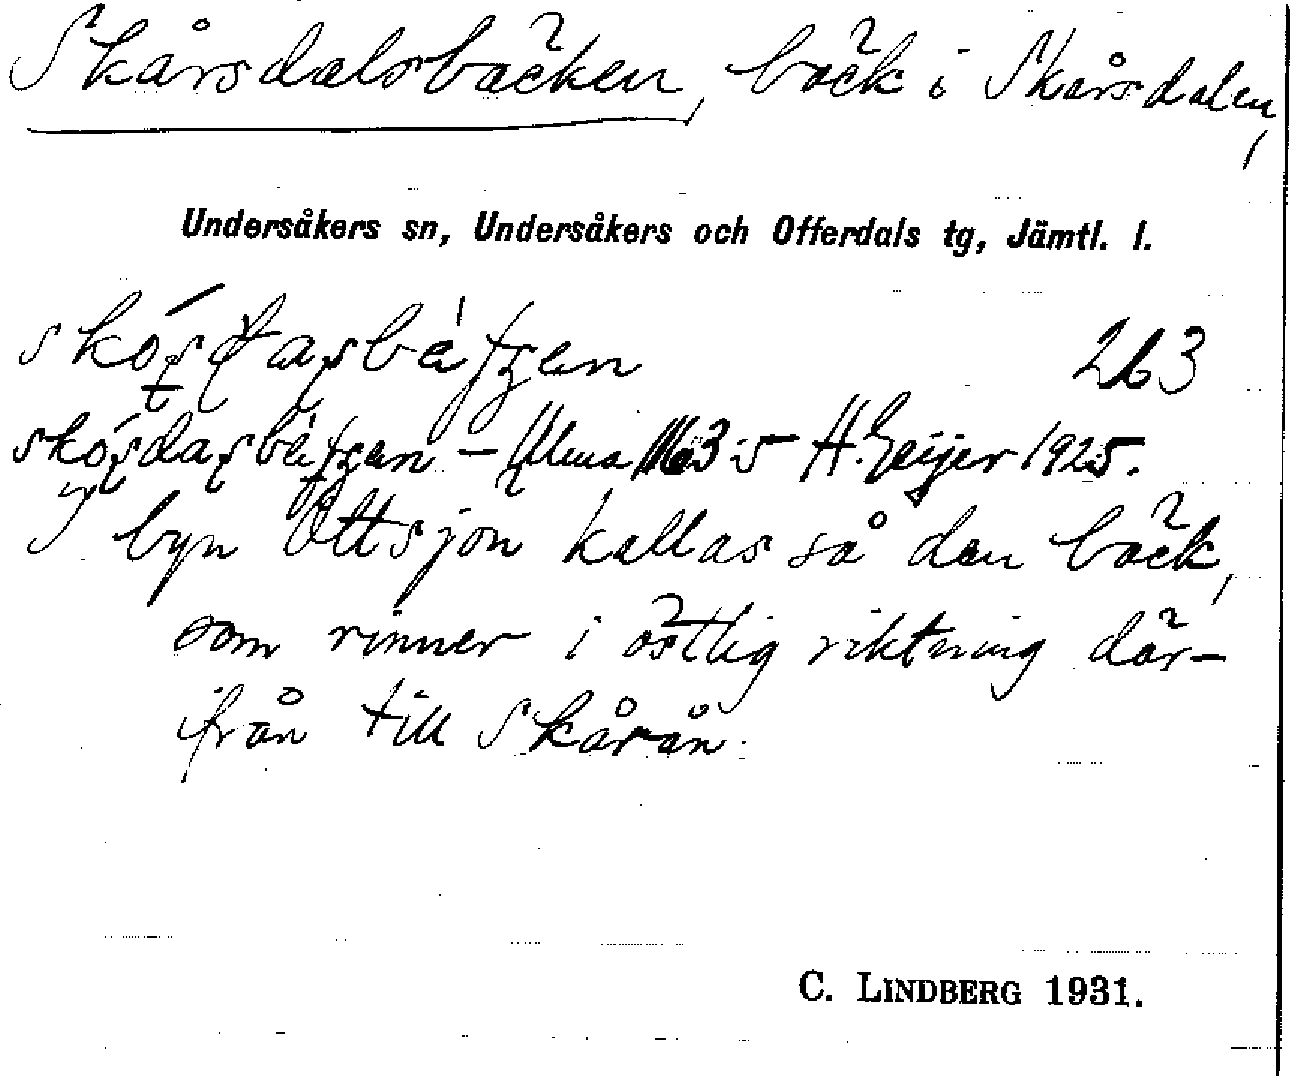 Skårsdalsbäcken, bäck i Skårsdalen,
Undersåkers sn, Undersåkers och Offerdals tg, Jämtl. l.
263
H. Geijer 1925.
I byn Ottsjön kallas så den bäck,
som rinner i östlig riktning där-
ifrån till Skårån.
C. LINDBERG 1931.